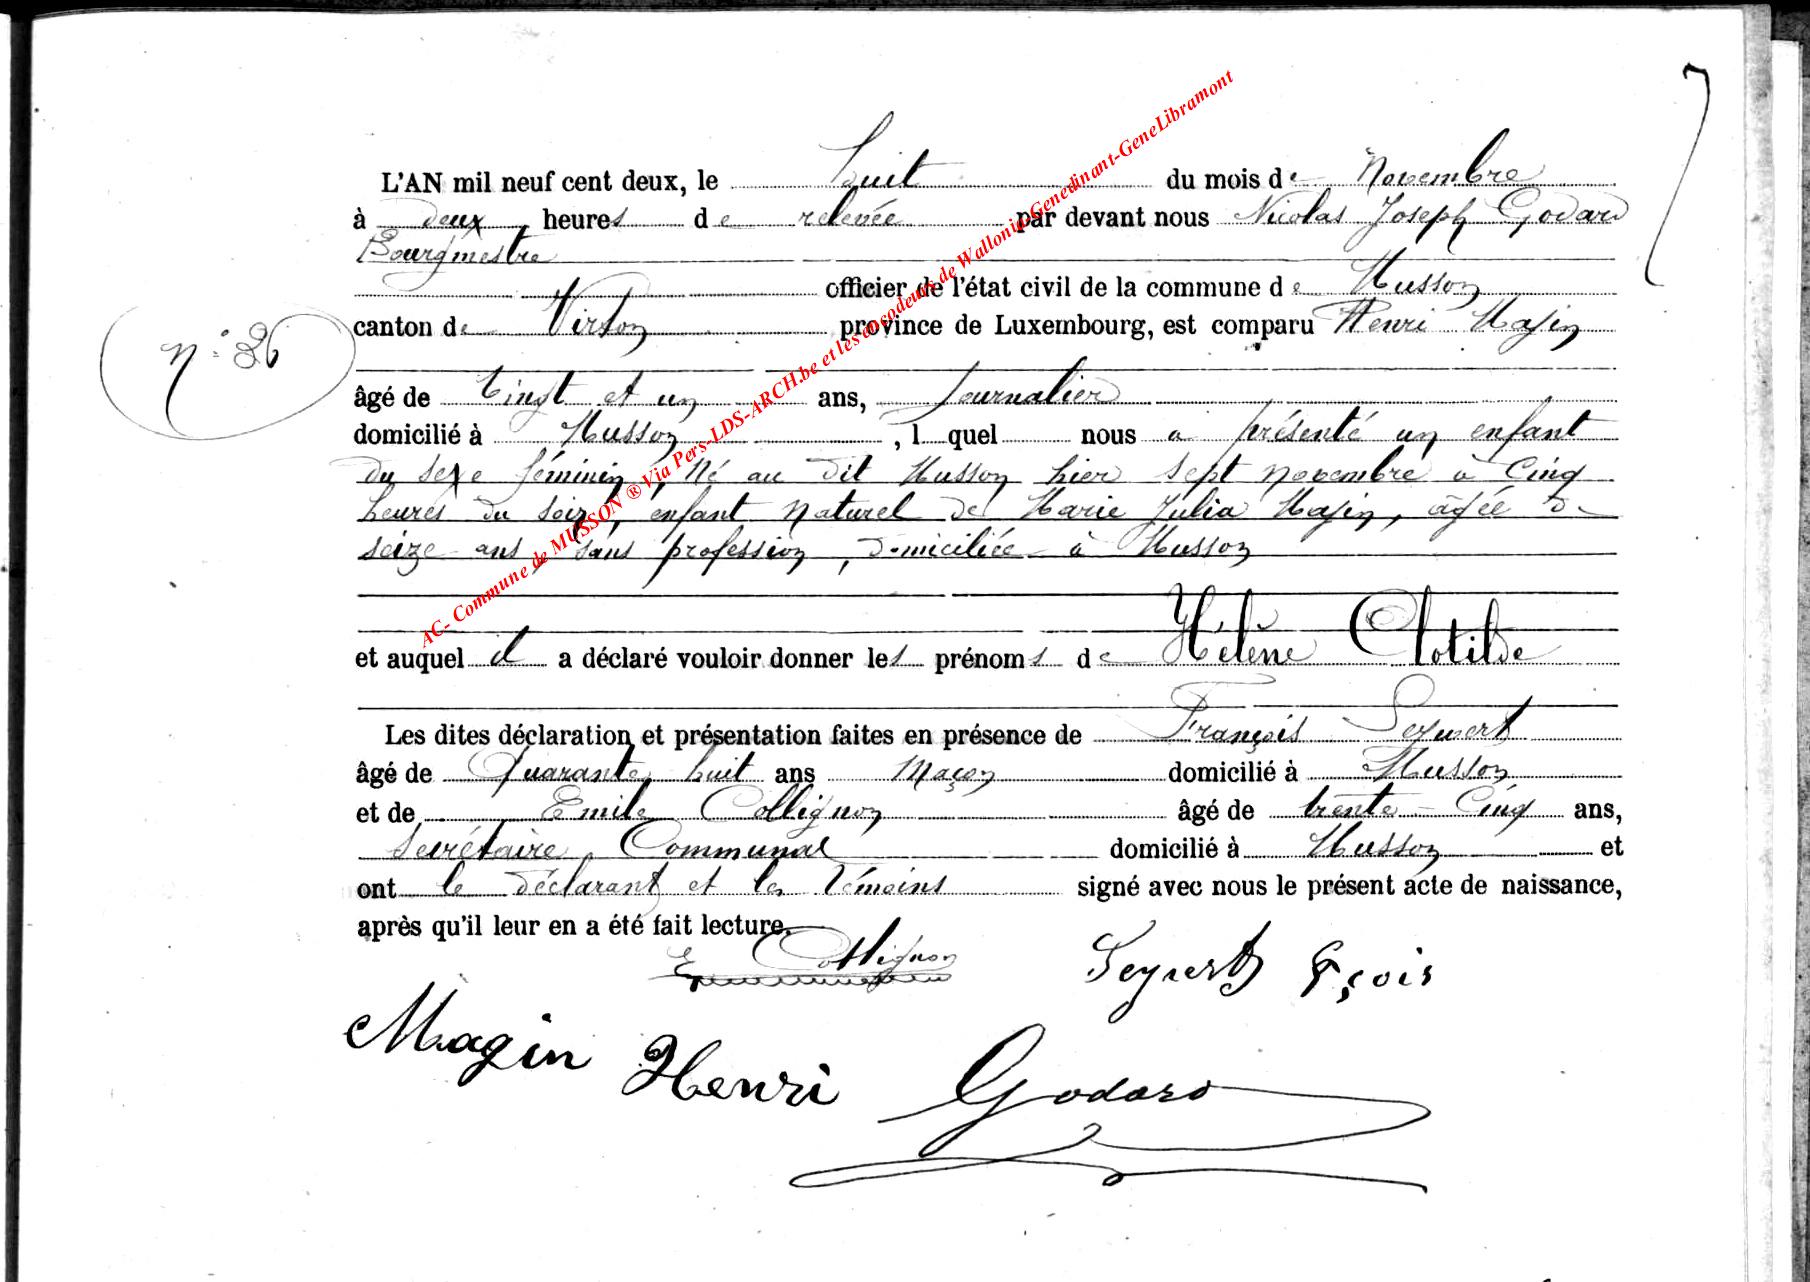 L'AN mil neuf cent deux, le huit du mois de Novembre
à deux heures de relevée par devant nous Nicolas Joseph Godard
Bourgmestre
officier de l'état civil de la commune de Musson
canton de Virton province de Luxembourg, est comparu Henri Magin
n° 36
âgé de vingt et un ans, journalier
domicilié à Musson, lequel nous a présenté un enfant
du sexe féminin, Né au dit Musson hier sept novembre à cinq
heures du soir, enfant naturel de Marie Julia Magin, âgée de
seize ans, sans profession, domiciliée à Musson
et auquel il a déclaré vouloir donner les prénoms de Hélène Clotilde
Les dites déclaration et présentation faites en présence de François Seywert
âgé de Quarante huit ans Maçon domicilié à Musson
et de Emile Collignon âgé de trente-Cinq ans,
Secrétaire Communal domicilié à Musson et
ont le déclarant et les témoins signé avec nous le présent acte de naissance,
après qu'il leur en a été fait lecture.
E Collignon
Fçois
Magin Henri
Godard
AC- Commune de MUSSON ® Via Pers-LDS-ARCH.be et les encodeurs de Wallonia-Genedinant-GeneLibramont